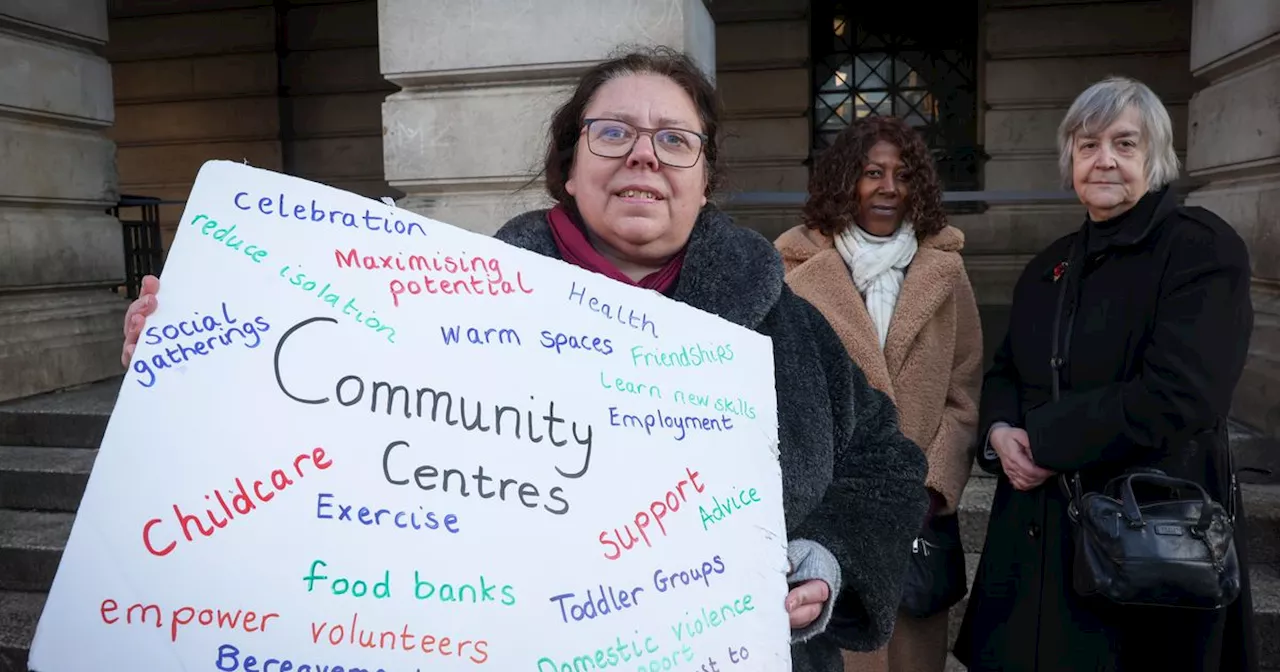 Celebration
reduce isolation
Maximising
potential
Health
social
gatherings
Warm spaces
Friendships
Learn new skills
Employment
Community
Centres
Childcare
Exercise
support
Advice
food banks
Toddler Groups
empower volunteers
Domestic violence
support
Bereavement
to